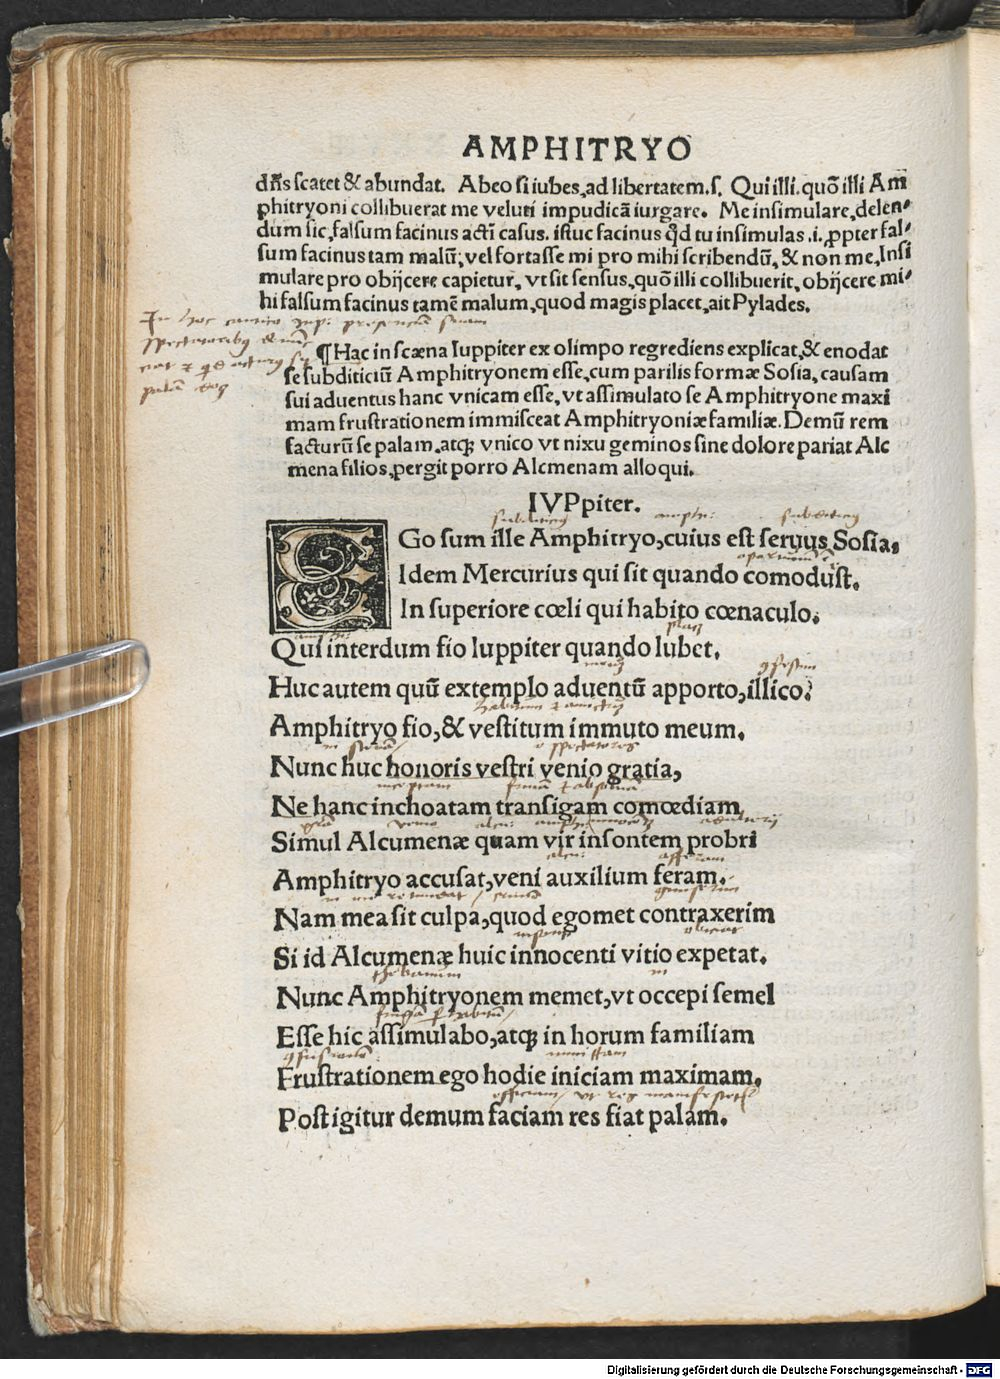 AMPHITRYO
dñs scatet & abundat. Abeo si iubes, ad libertatem .s. Qui illi. quõ illi Am
phitryoni collibuerat me veluti impudicã iurgare. Me insimulare, delen-
dum sic, falsum facinus acti casus. istuc facinus qd tu insimulas .i. ꝓpter fal-
sum facinus tam malũ; vel fortasse mi pro mihi scribendũ, & non me, Insi
mulare pro obijcere capietur, vt sit sensus, quõ illi collibuerit, obijcere mi-
hi falsum facinus tamẽ malum, quod magis placet, ait Pylades.
In hoc
spectatoribus
palã
¶Hac in scæna Iuppiter ex olimpo regrediens explicat, & enodat
se subditiciũ Amphitryonem esse, cum parilis formæ Sosia, causam
sui aduentus hanc vnicam esse, vt assimulato se Amphitryone maxi
mam frustrationem immisceat Amphitryoniæ familiæ. Demũ rem
facturũ se palam. atqꝫ vnico vt nixu geminos sine dolore pariat Alc
mena filios, pergit porro Alcmenam alloqui.
IVPpiter.
EGo sum ille Amphitryo, cuius est seruus Sosia,
Idem Mercurius qui sit quando comodust.
In superiore cœli qui habito cœnaculo.
Qui interdum fio Iuppiter quando lubet.
Huc autem quũ extemplo aduentũ apporto, illico.
Amphitryo fio, & vestitum immuto meum.
o spectatores
Nunc huc honoris vestri venio gratia,
Ne hanc inchoatam transigam comœdiam
Simul Alcumenæ quam vir insontem probri
Amphitryo accusat, veni auxilium feram.
Nam mea sit culpa, quod egomet contraxerim
Si id Alcumenæ huic innocenti vitio expetat.
thebanum
Nunc Amphitryonem memet, vt occepi semel
Esse hic assimulabo, atqꝫ in horum familiam
Frustrationem ego hodie iniciam maximam.
Post igitur demum faciam res fiat palam.
Digitalisierung gefördert durch die Deutsche Forschungsgemeinschaft - DFG